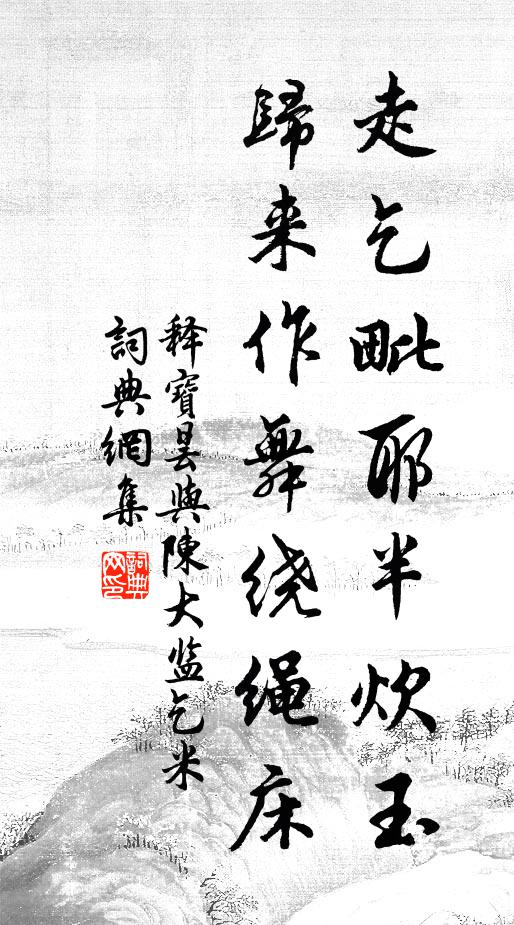 走乞毗耶半炊玉
歸来作舞绕绳床
释寶昙與陳大监乞米
詞典網集
詞典网印